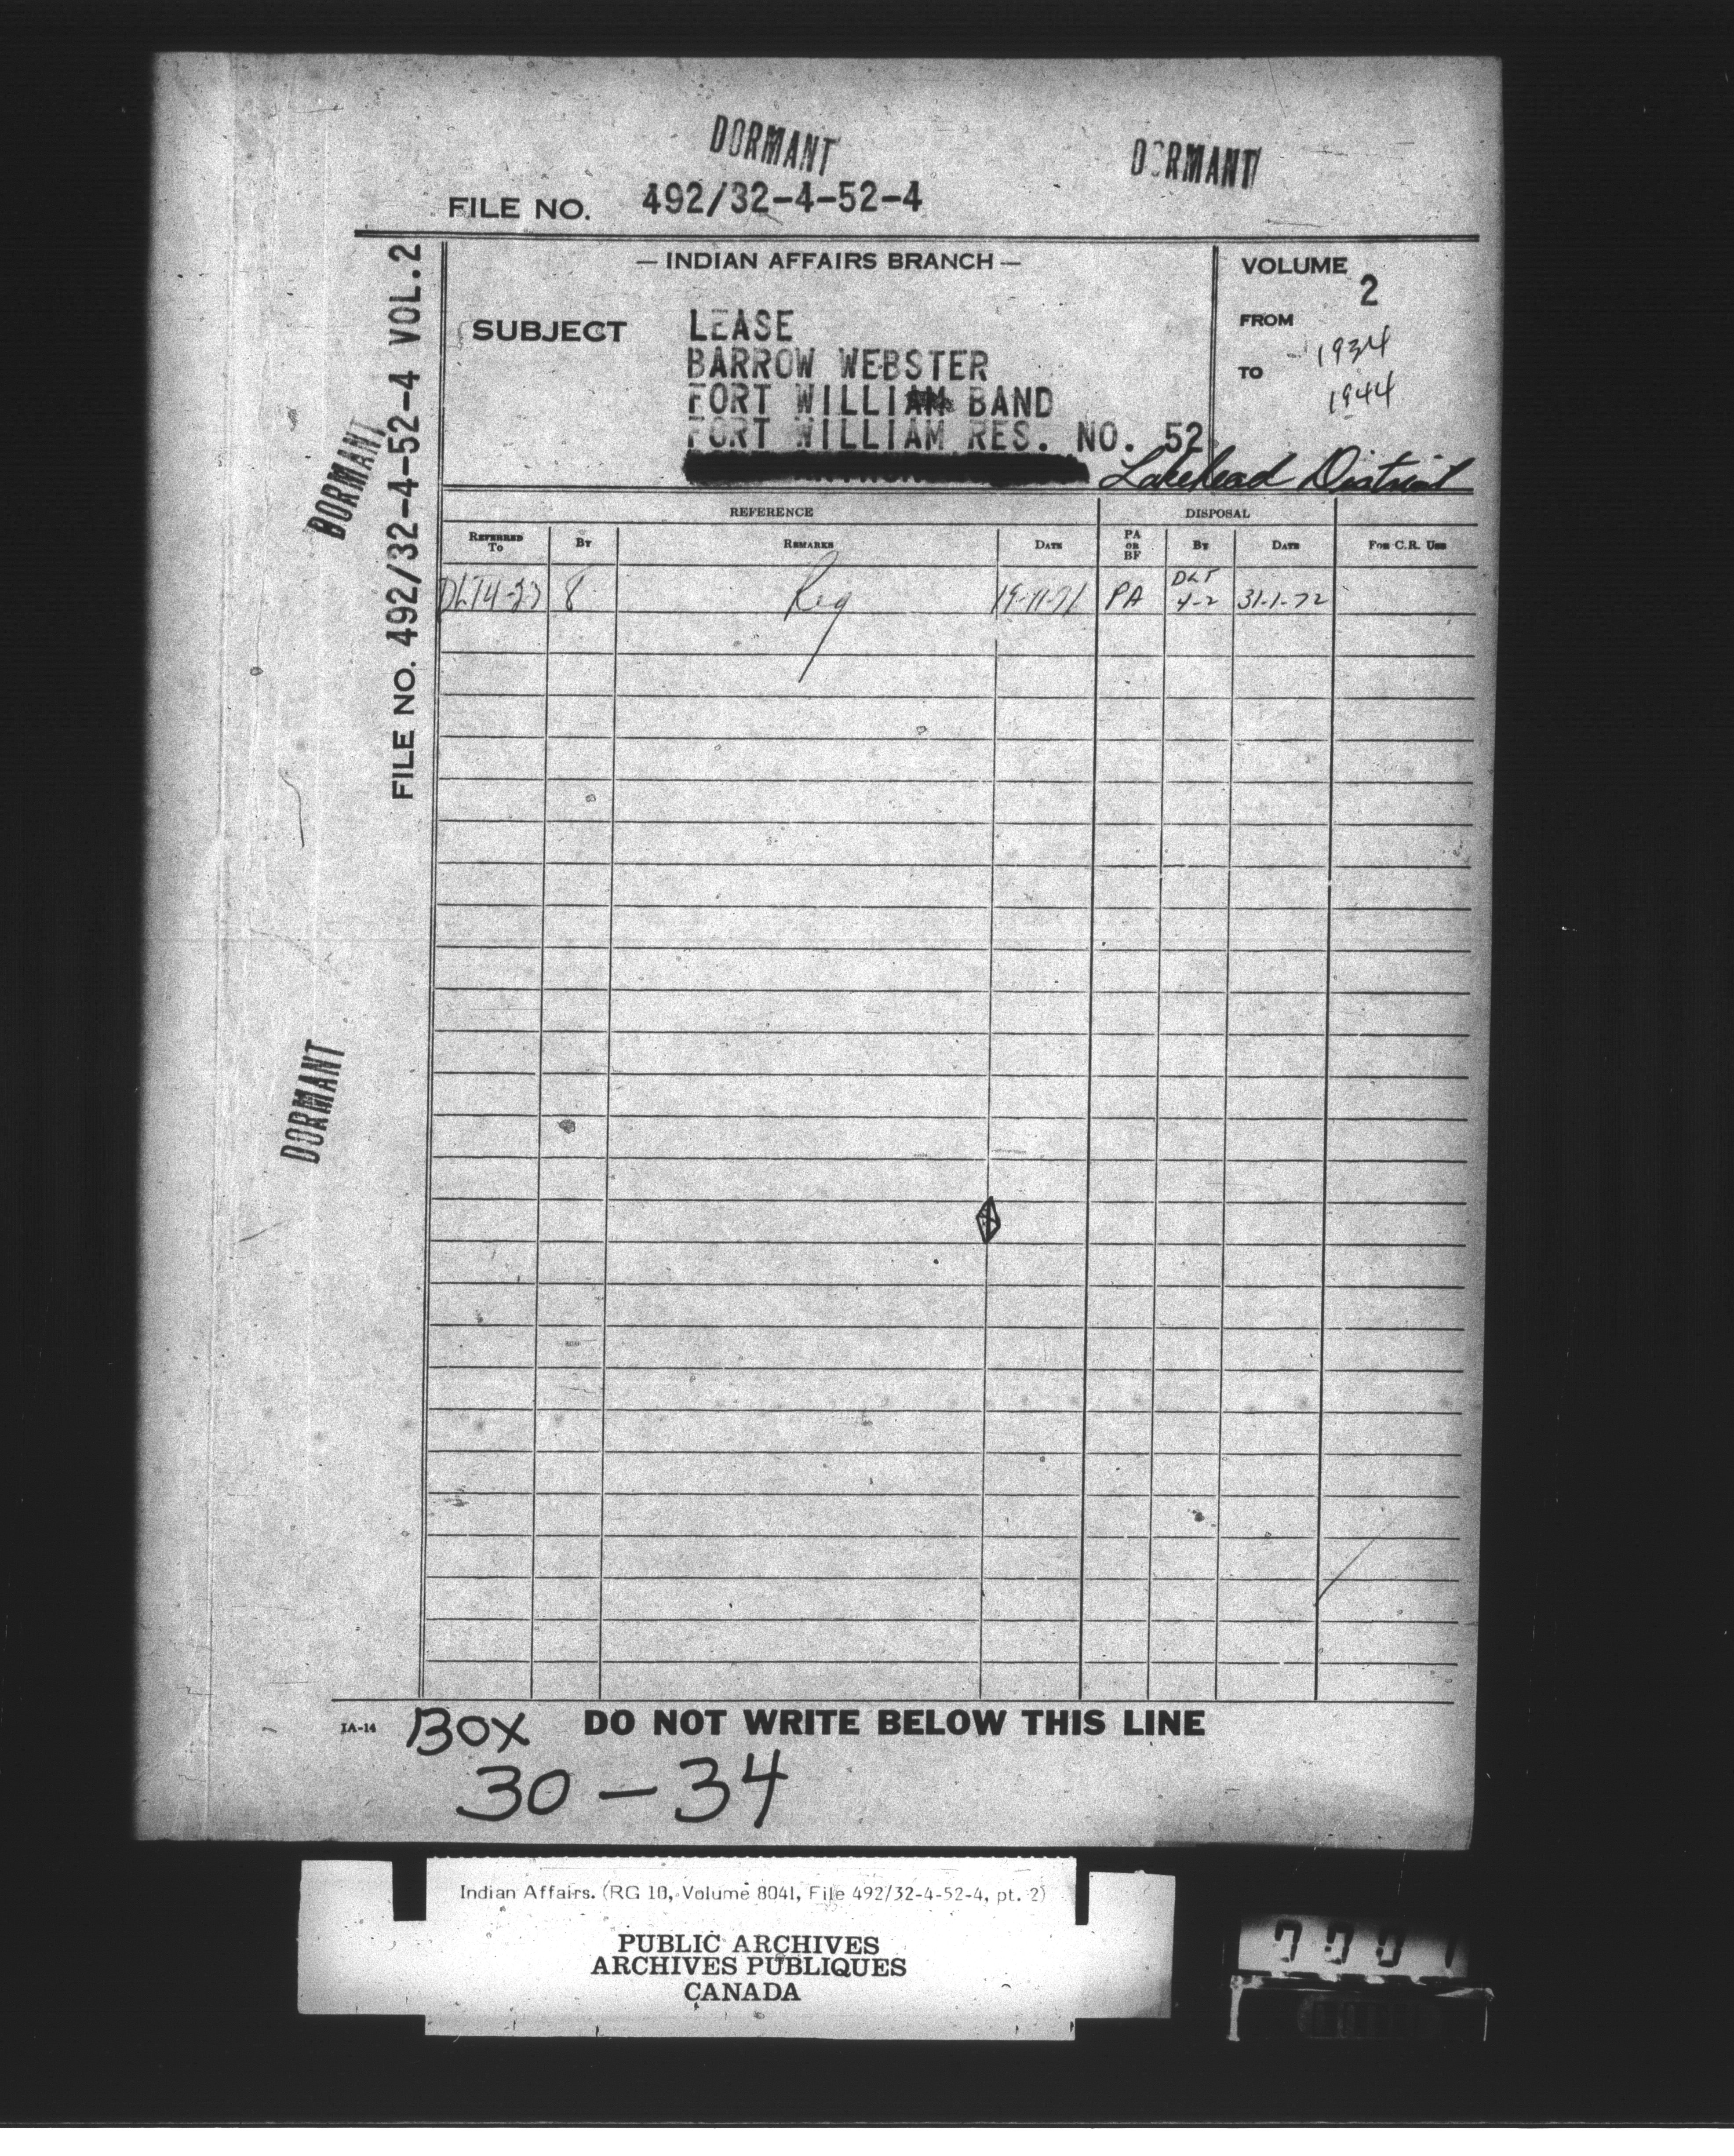 DORMANT
DORMANT
FILE NO. 492/32-4-52-4
FILE NO. 492/32-4-52-4 VOL.2
DORMANT
DORMANT
— INDIAN AFFAIRS BRANCH —
SUBJECT LEASE
BARROW WEBSTER
FORT WILLIAM BAND
FORT WILLIAM RES. NO. 52
Lakehead District
VOLUME 2
FROM 1934
TO 1944
REFERENCE DISPOSAL
REFERRED TO BY REMARKS DATE PA OR BF BY DATE FOR C.R. USE
8 Reg 19-11-71 PA 4-2 31-1-72
IA-14 BOX DO NOT WRITE BELOW THIS LINE
30-34
Indian Affairs. (RG 10, Volume 8041, File 492/32-4-52-4, pt. 2)
PUBLIC ARCHIVES
ARCHIVES PUBLIQUES
CANADA